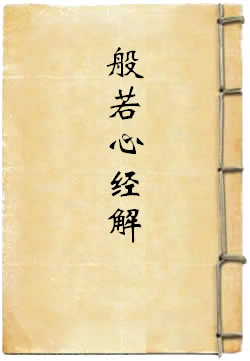 般若心经解